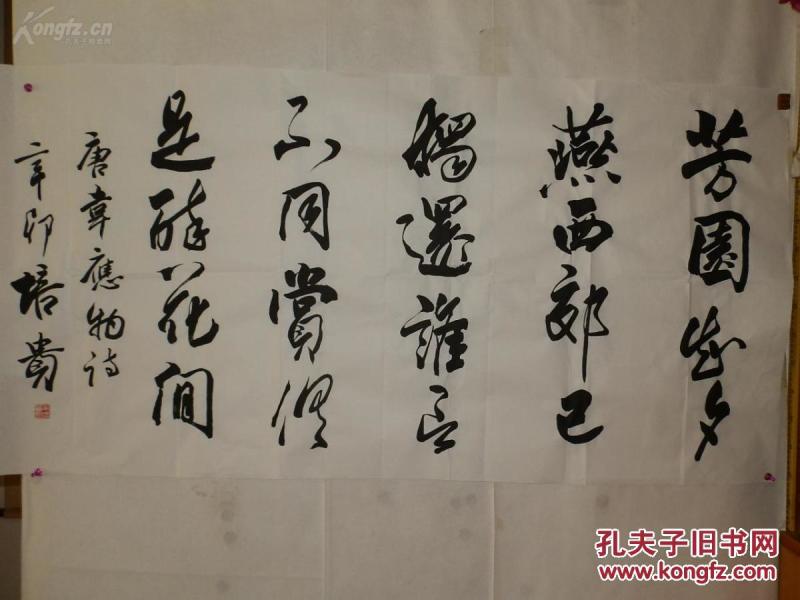 芳園知夕
燕西郊已
獨還誰言
不同賞俱
是醉花間
唐韋應物詩
辛卯培貴
Kongfz.cn
孔夫子旧书网
www.kongfz.com